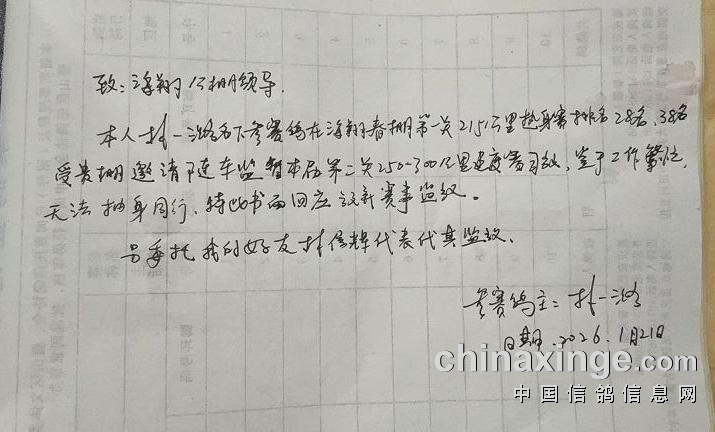 致：海翔公棚领导.
本人林一路名下参赛鸽在海翔春棚第一关215公里热身赛排名28名、38名
受贵棚邀请随车监督本届第二关250-300公里速度赛司放，鉴于工作繁忙，
无法抽身同行，特此书面回应放弃赛事监放。
另委托我的好友林信辉代表代其监放.
参赛鸽主：林一路
日期.2026.1月21日
chinaxinge.com
中国信鸽信息网